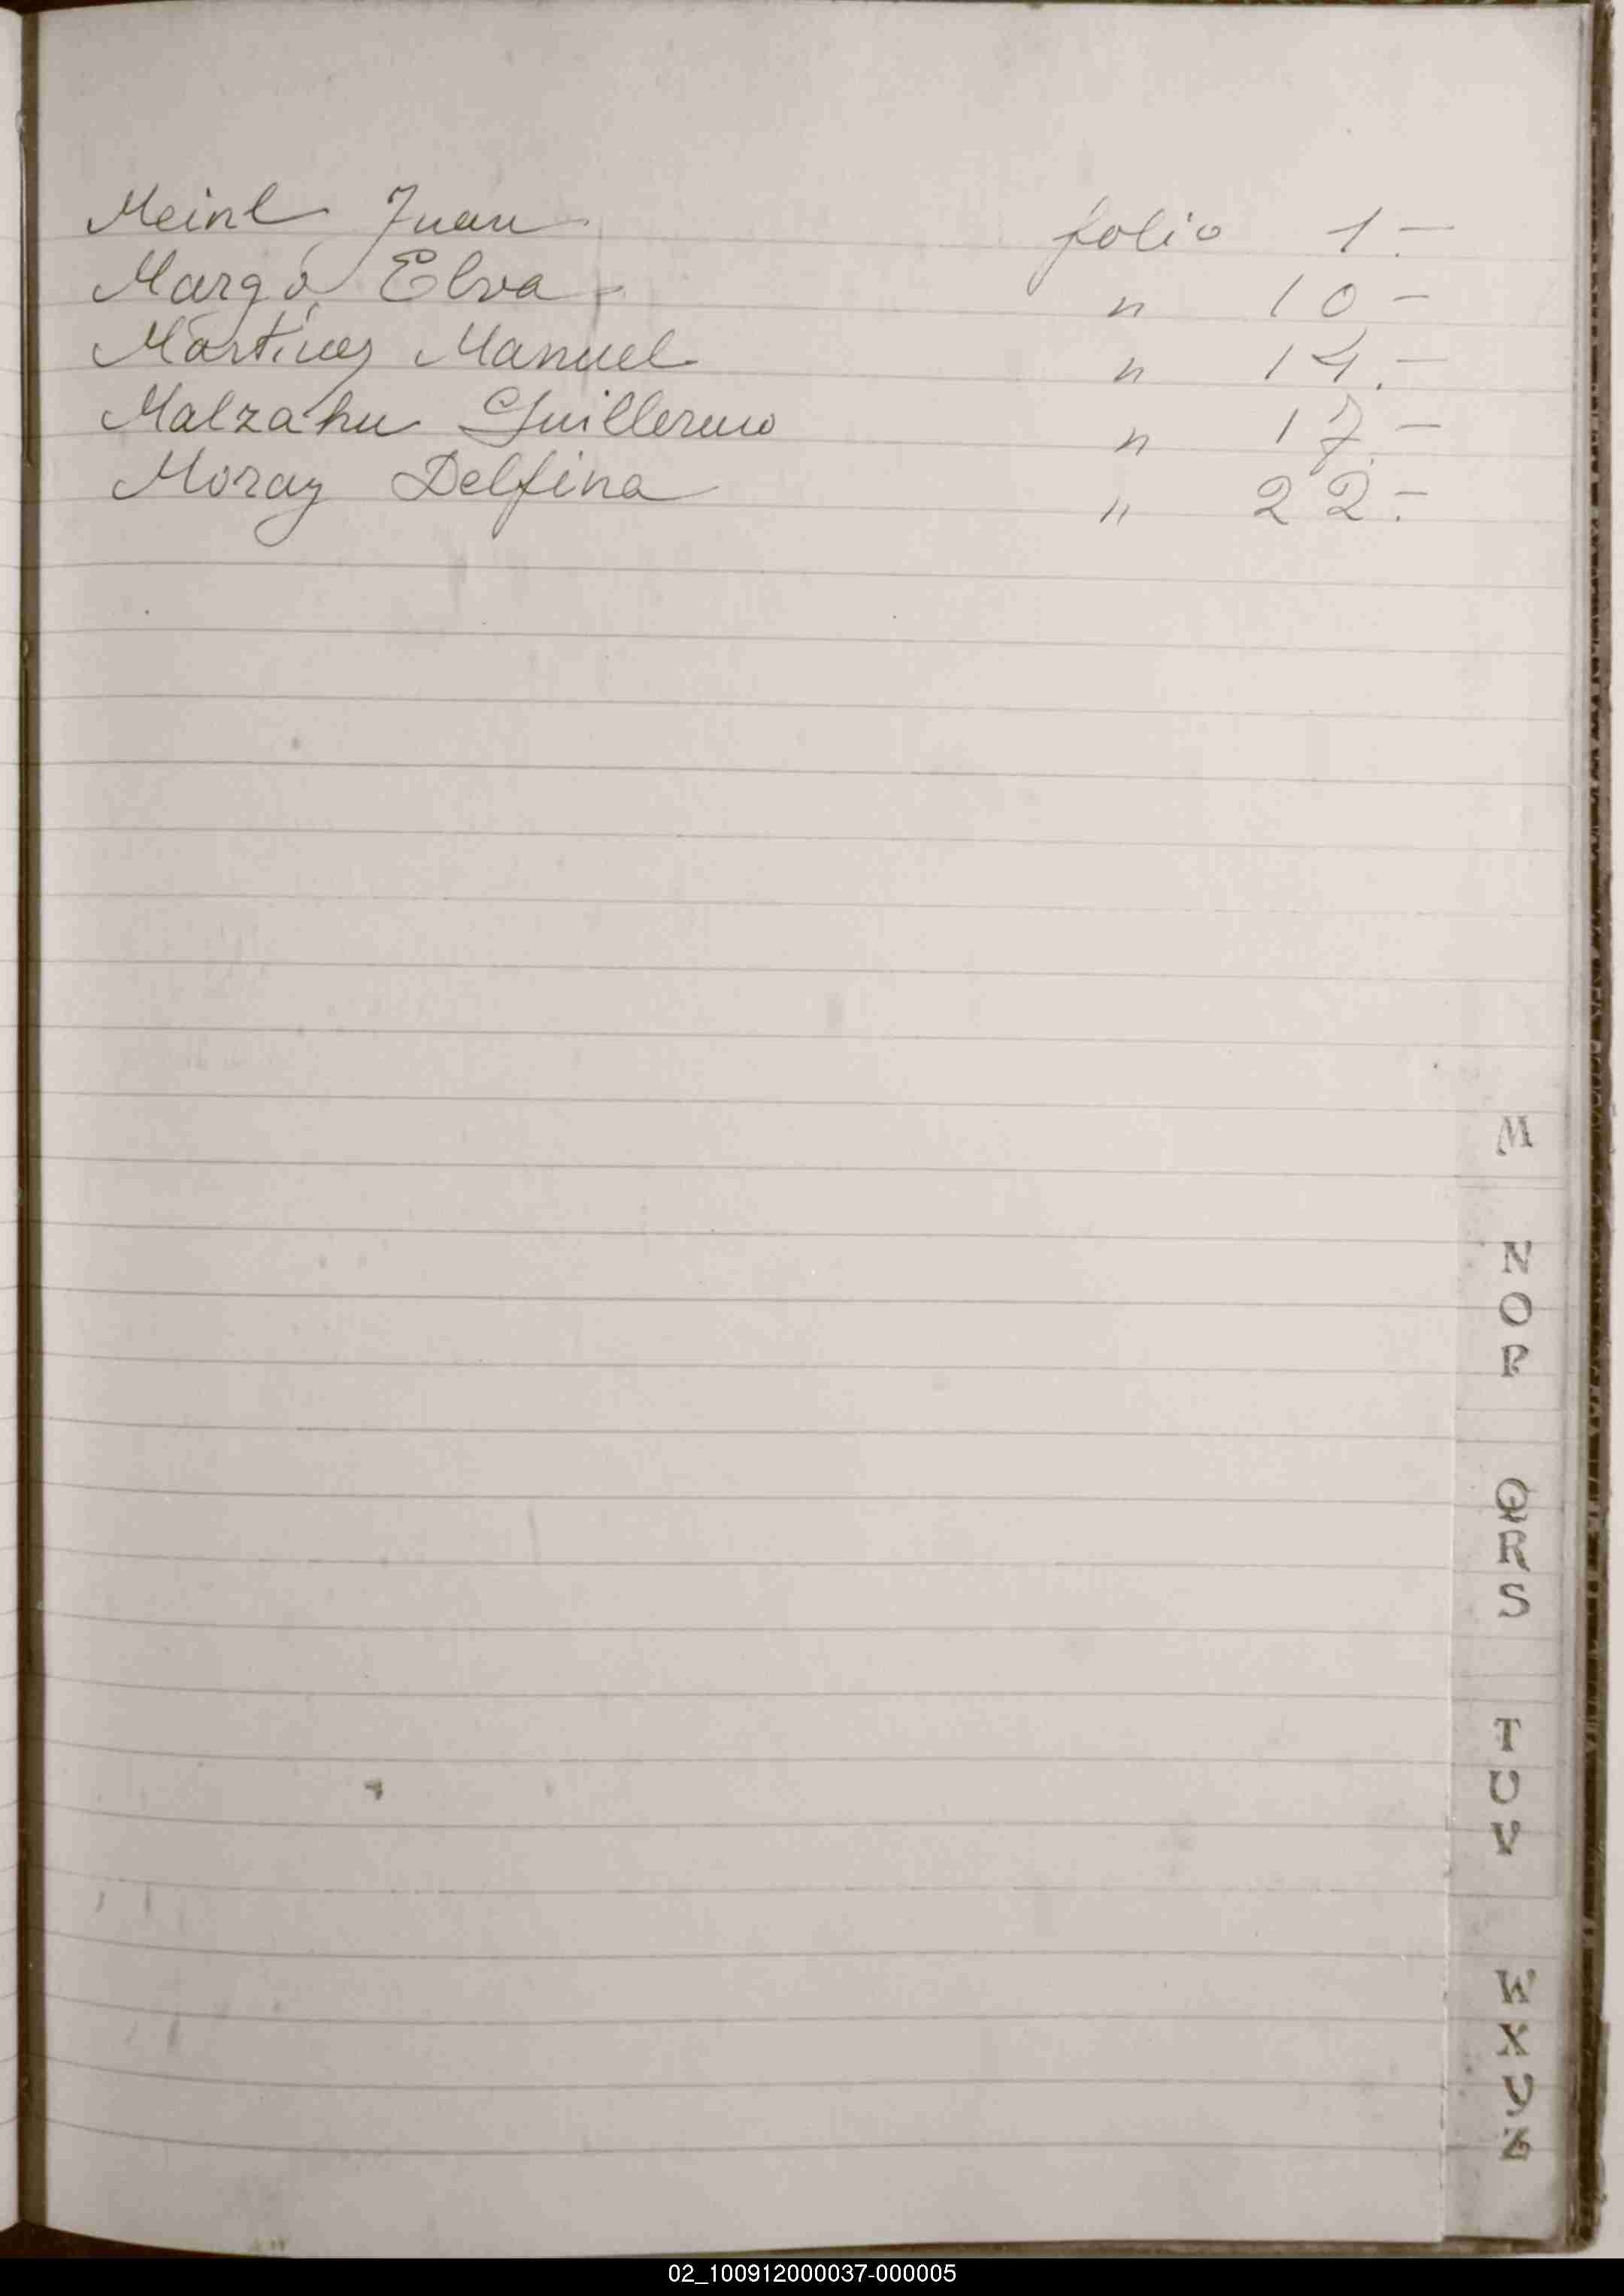 Meinl Juan folio 1.-
Margó Elva " 10-
Martínez Manuel " 14.-
Malzahn Guillermo " 17.-
Moray Delfina " 22.-
M
N
O
P
Q
R
S
T
U
V
W
X
Y
Z
02_100912000037-000005